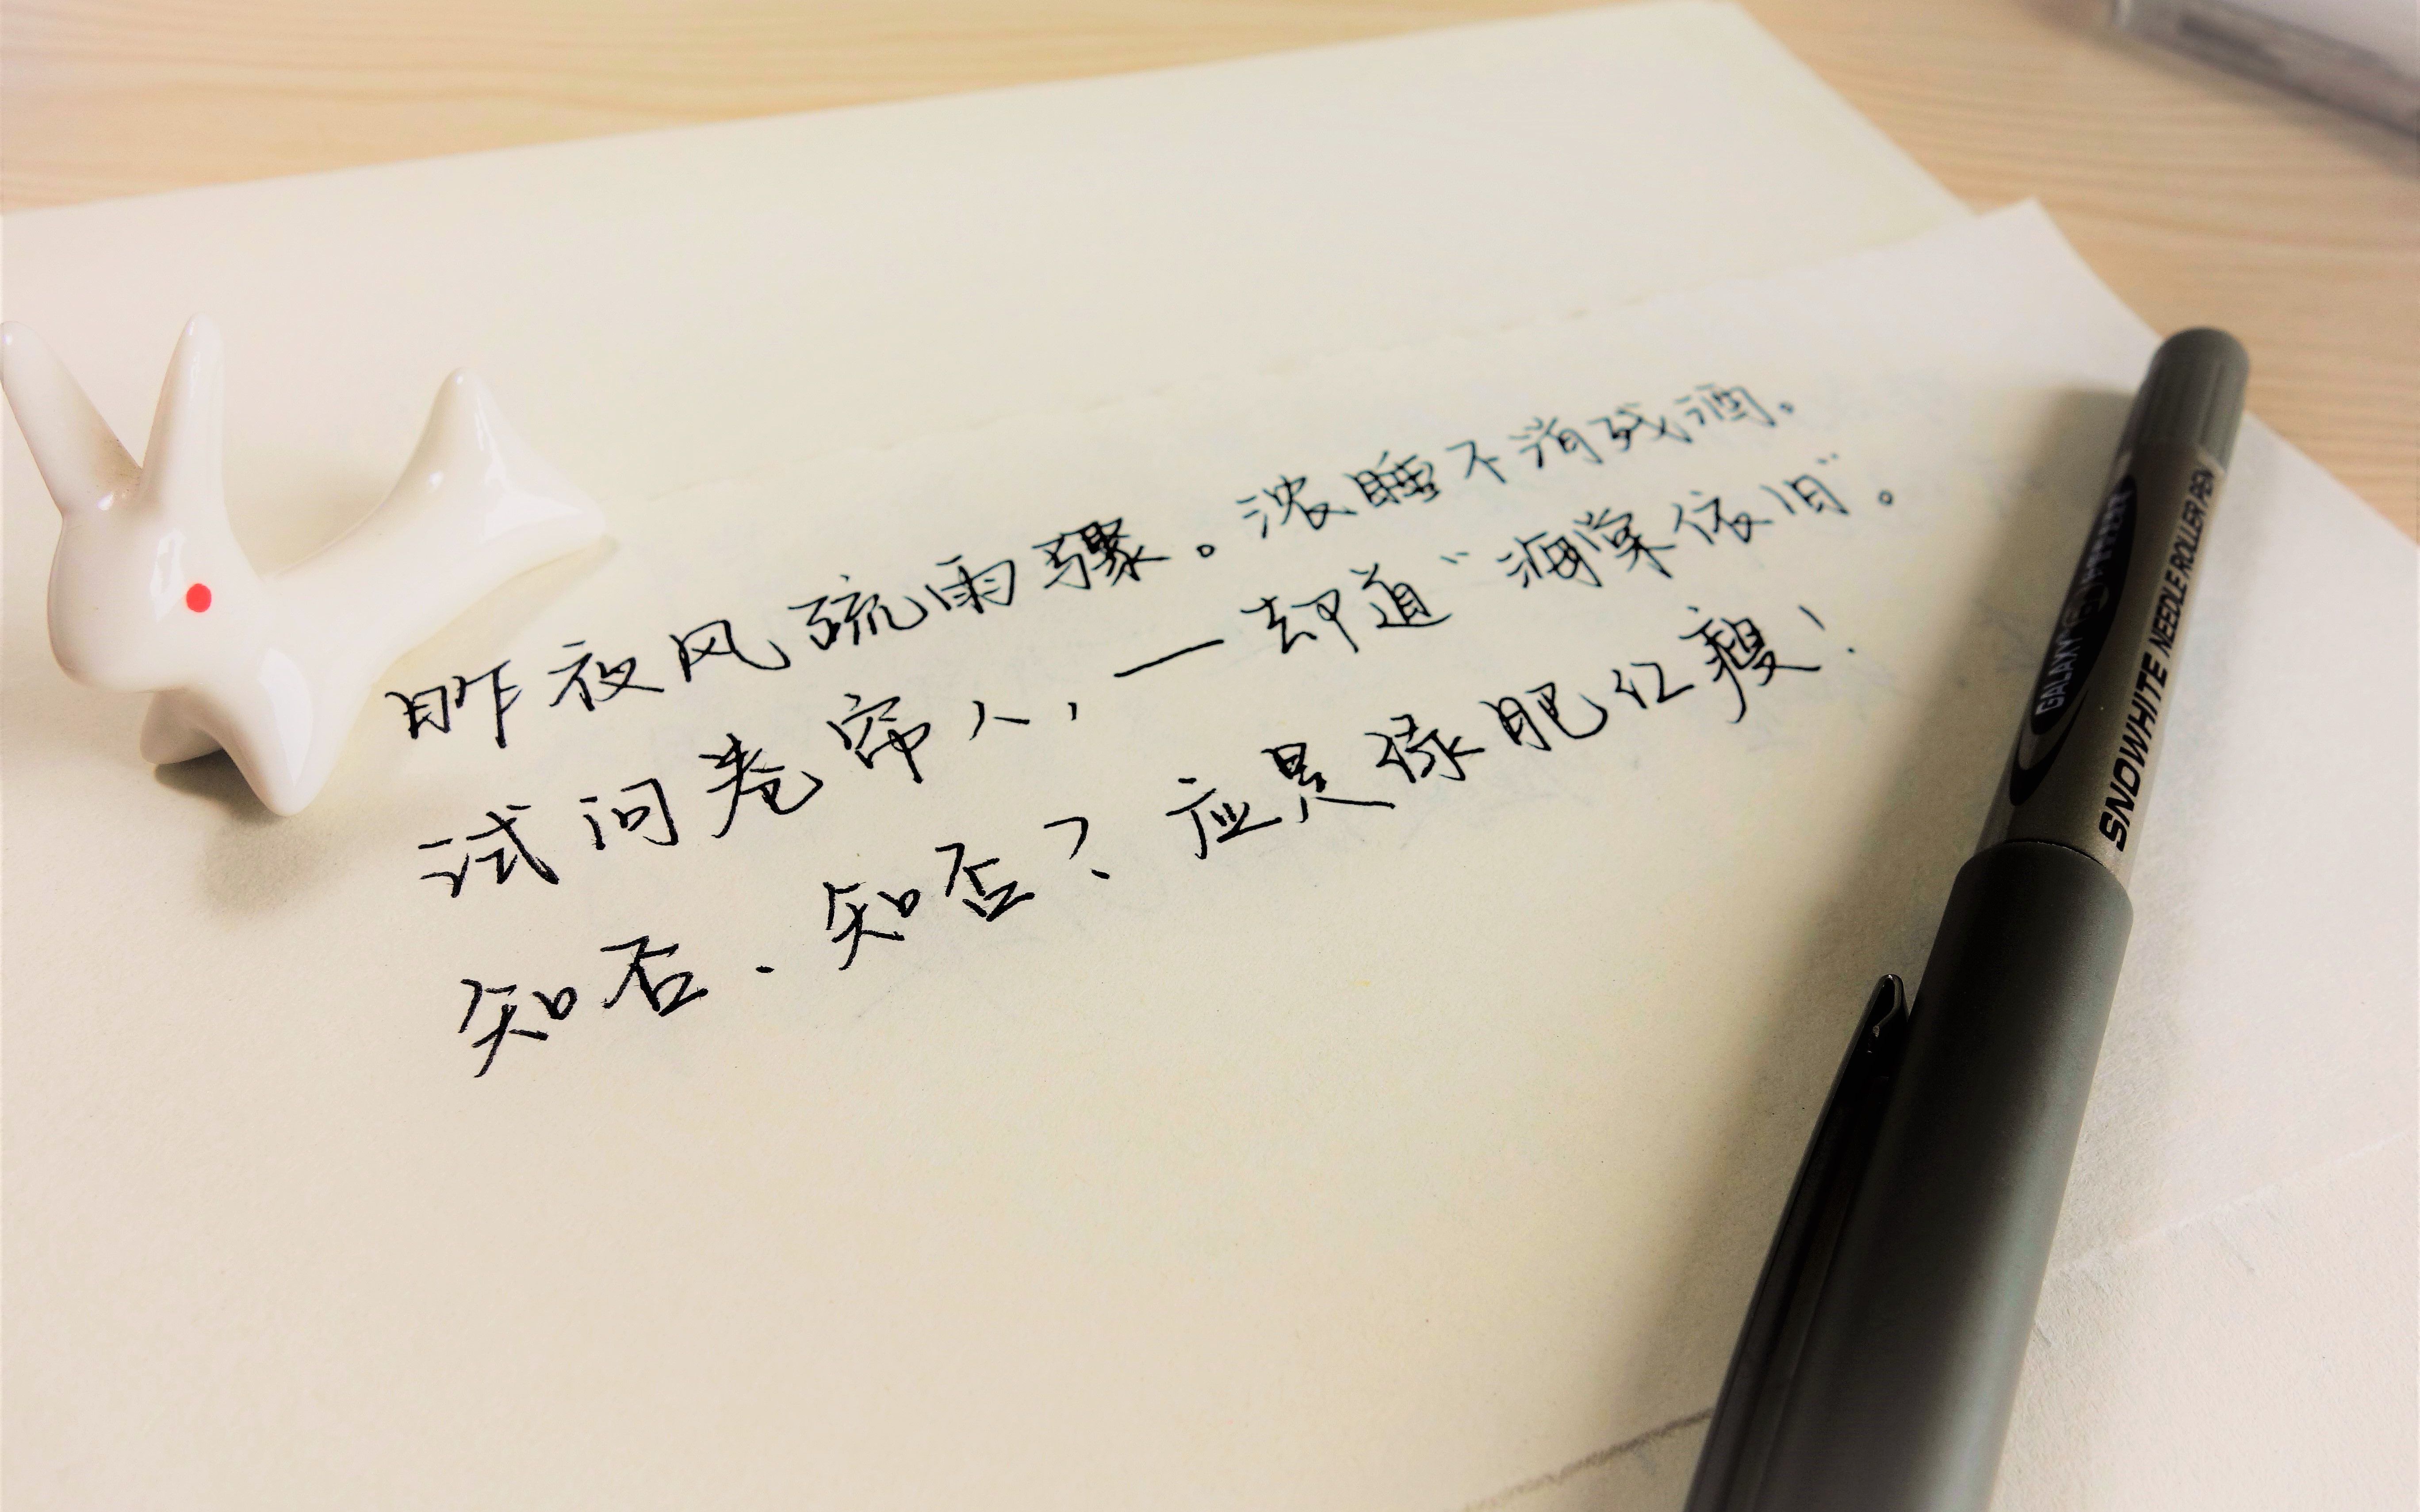 昨夜风疏雨骤。浓睡不消残酒。
试问卷帘人，一却道“海棠依旧”。
知否、知否？应是绿肥红瘦！
SNOWHITE NEEDLE ROLLER PEN
GALAXY